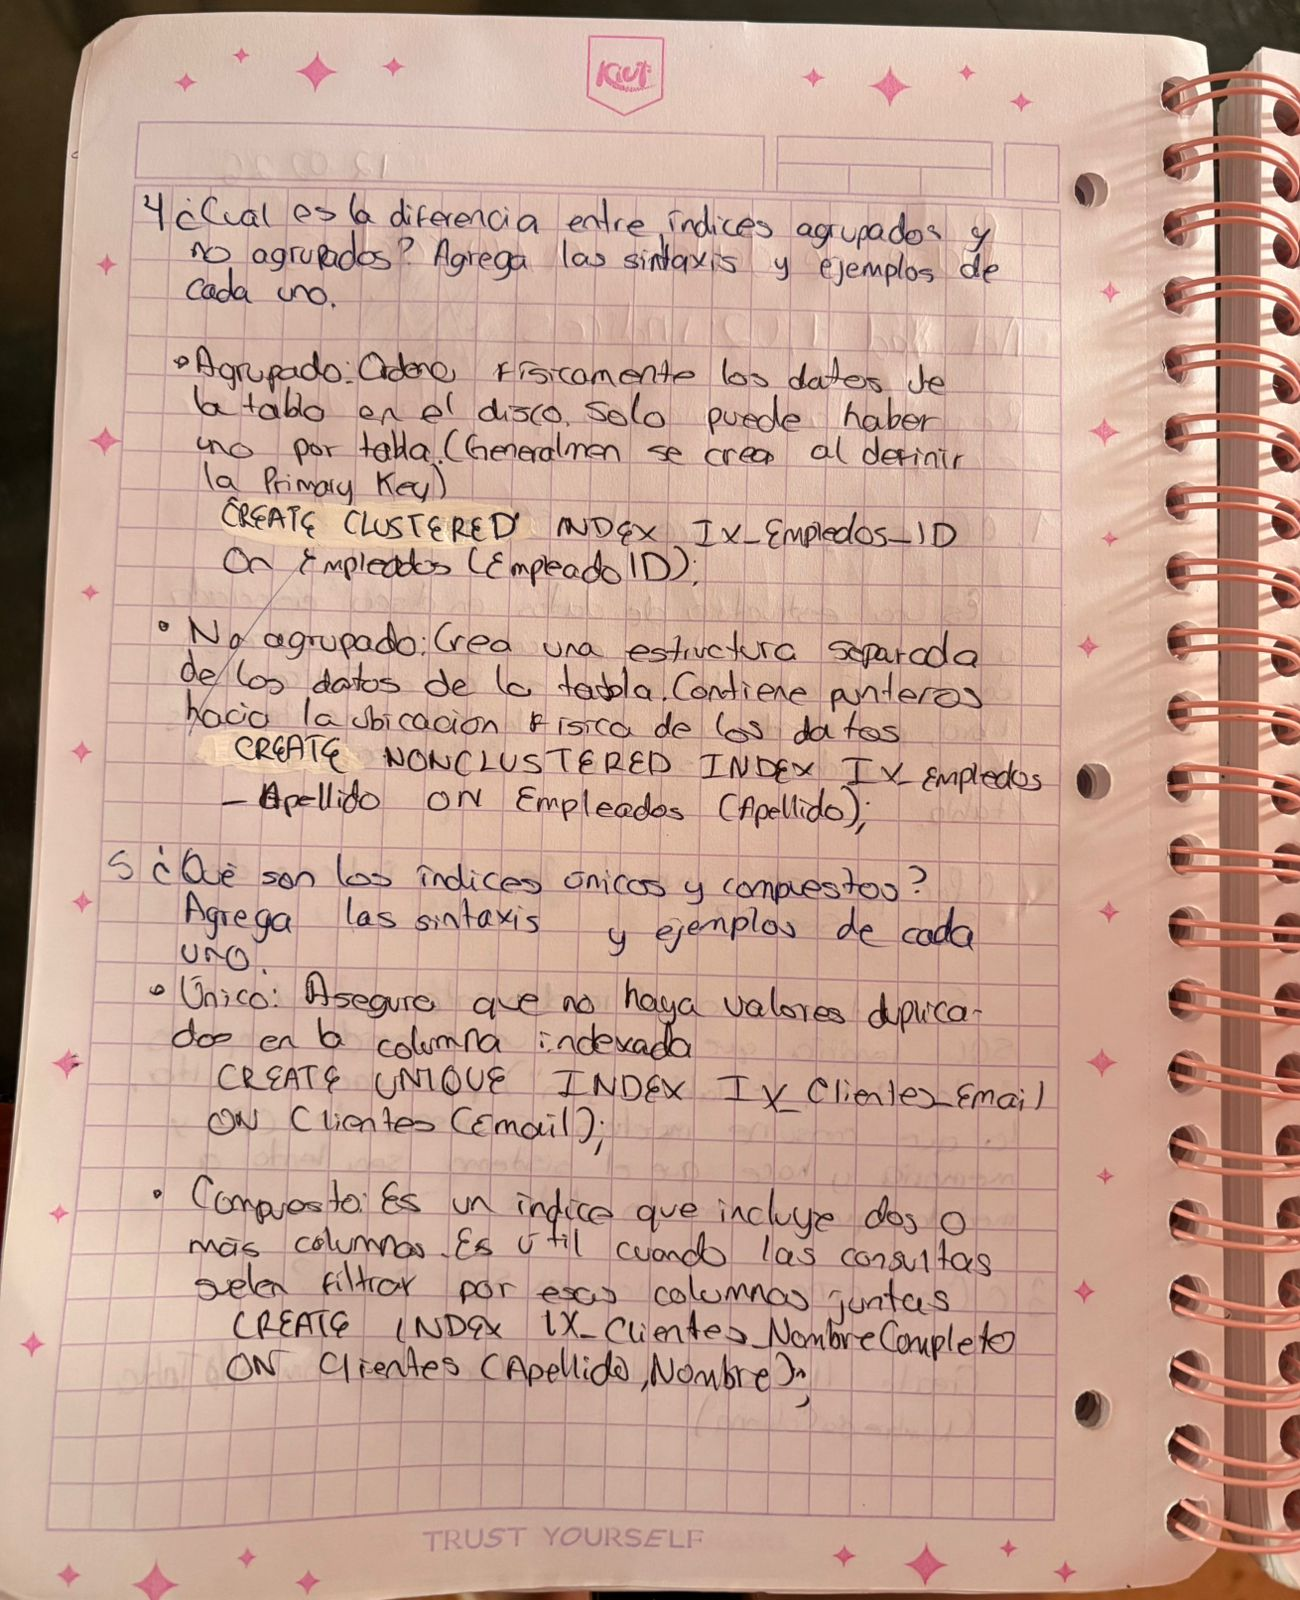 Kiut
4 ¿Cual es la diferencia entre índices agrupados y
no agrupados? Agrega las sintaxis y ejemplos de
cada uno.
• Agrupado: Ordena físicamente los datos de
la tabla en el disco. Solo puede haber
uno por tabla. (Generalmen se crea al definir
la Primary Key)
CREATE CLUSTERED INDEX IX_Empledos_ID
On Empleados (EmpleadoID);
• No agrupado: Crea una estructura separada
de los datos de la tabla. Contiene punteros
hacia la ubicacion fisica de los datos
CREATE NONCLUSTERED INDEX IX_Empledos
_Apellido ON Empleados (Apellido);
5 ¿Qué son los índices únicos y compuestos?
Agrega las sintaxis y ejemplos de cada
uno.
• Único: Asegura que no haya valores duplica-
dos en la columna indexada
CREATE UNIQUE INDEX IX_Clientes_Email
ON Clientes (Email);
• Compuesto: Es un índice que incluye dos o
más columnas. Es útil cuando las consultas
suelen filtrar por esas columnas juntas
CREATE INDEX IX_Clientes_NombreCompleto
ON Clientes (Apellido, Nombre);
TRUST YOURSELF